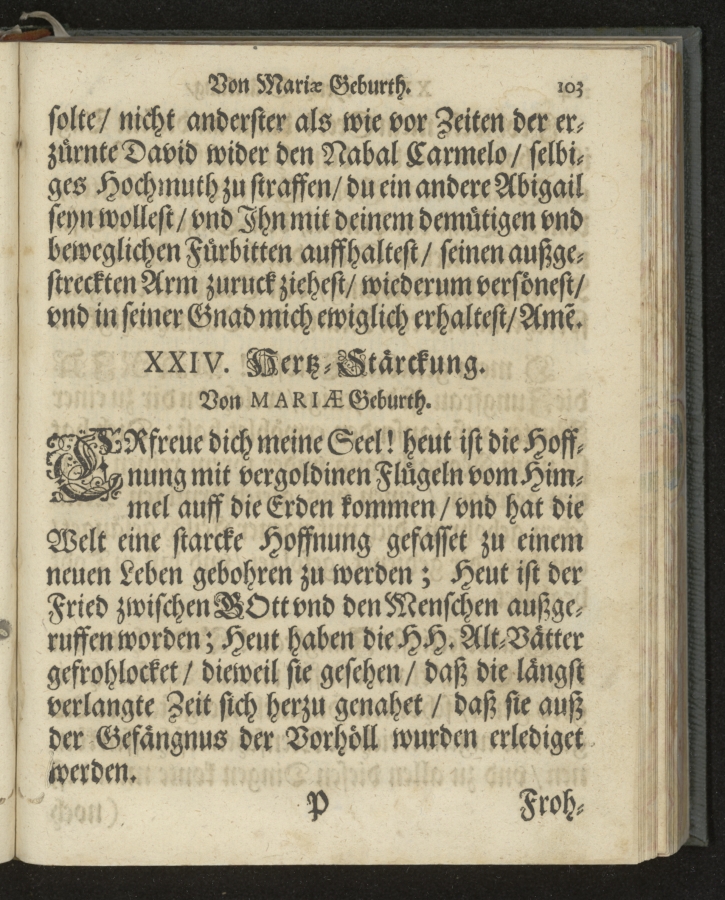 Von Mariæ Geburth. 103
solte/ nicht anderster als wie vor Zeiten der er⸗
zürnte David wider den Nabal Carmelo/ selbi⸗
ges Hochmuth zu straffen/ du ein andere Abigail
seyn wollest/ vnd Ihn mit deinem demütigen vnd
beweglichen Fürbitten auffhaltest/ seinen außge⸗
streckten Arm zuruck ziehest/ wiederum versönest/
vnd in seiner Gnad mich ewiglich erhaltest/ Amẽ.
XXIV. Hertz⸗Stärckung.
Von MARIÆ Geburth.
ERfreue dich meine Seel! heut ist die Hoff⸗
nung mit vergoldinen Flügeln vom Him⸗
mel auff die Erden kommen/ vnd hat die
Welt eine starcke Hoffnung gefasset zu einem
neuen Leben gebohren zu werden; Heut ist der
Fried zwischen GOtt vnd den Menschen außge⸗
ruffen worden; Heut haben die HH. Alt⸗Vätter
gefrohlocket/ dieweil sie gesehen/ daß die längst
verlangte Zeit sich herzu genahet/ daß sie auß
der Gefängnus der Vorhöll wurden erlediget
werden.
P Froh⸗